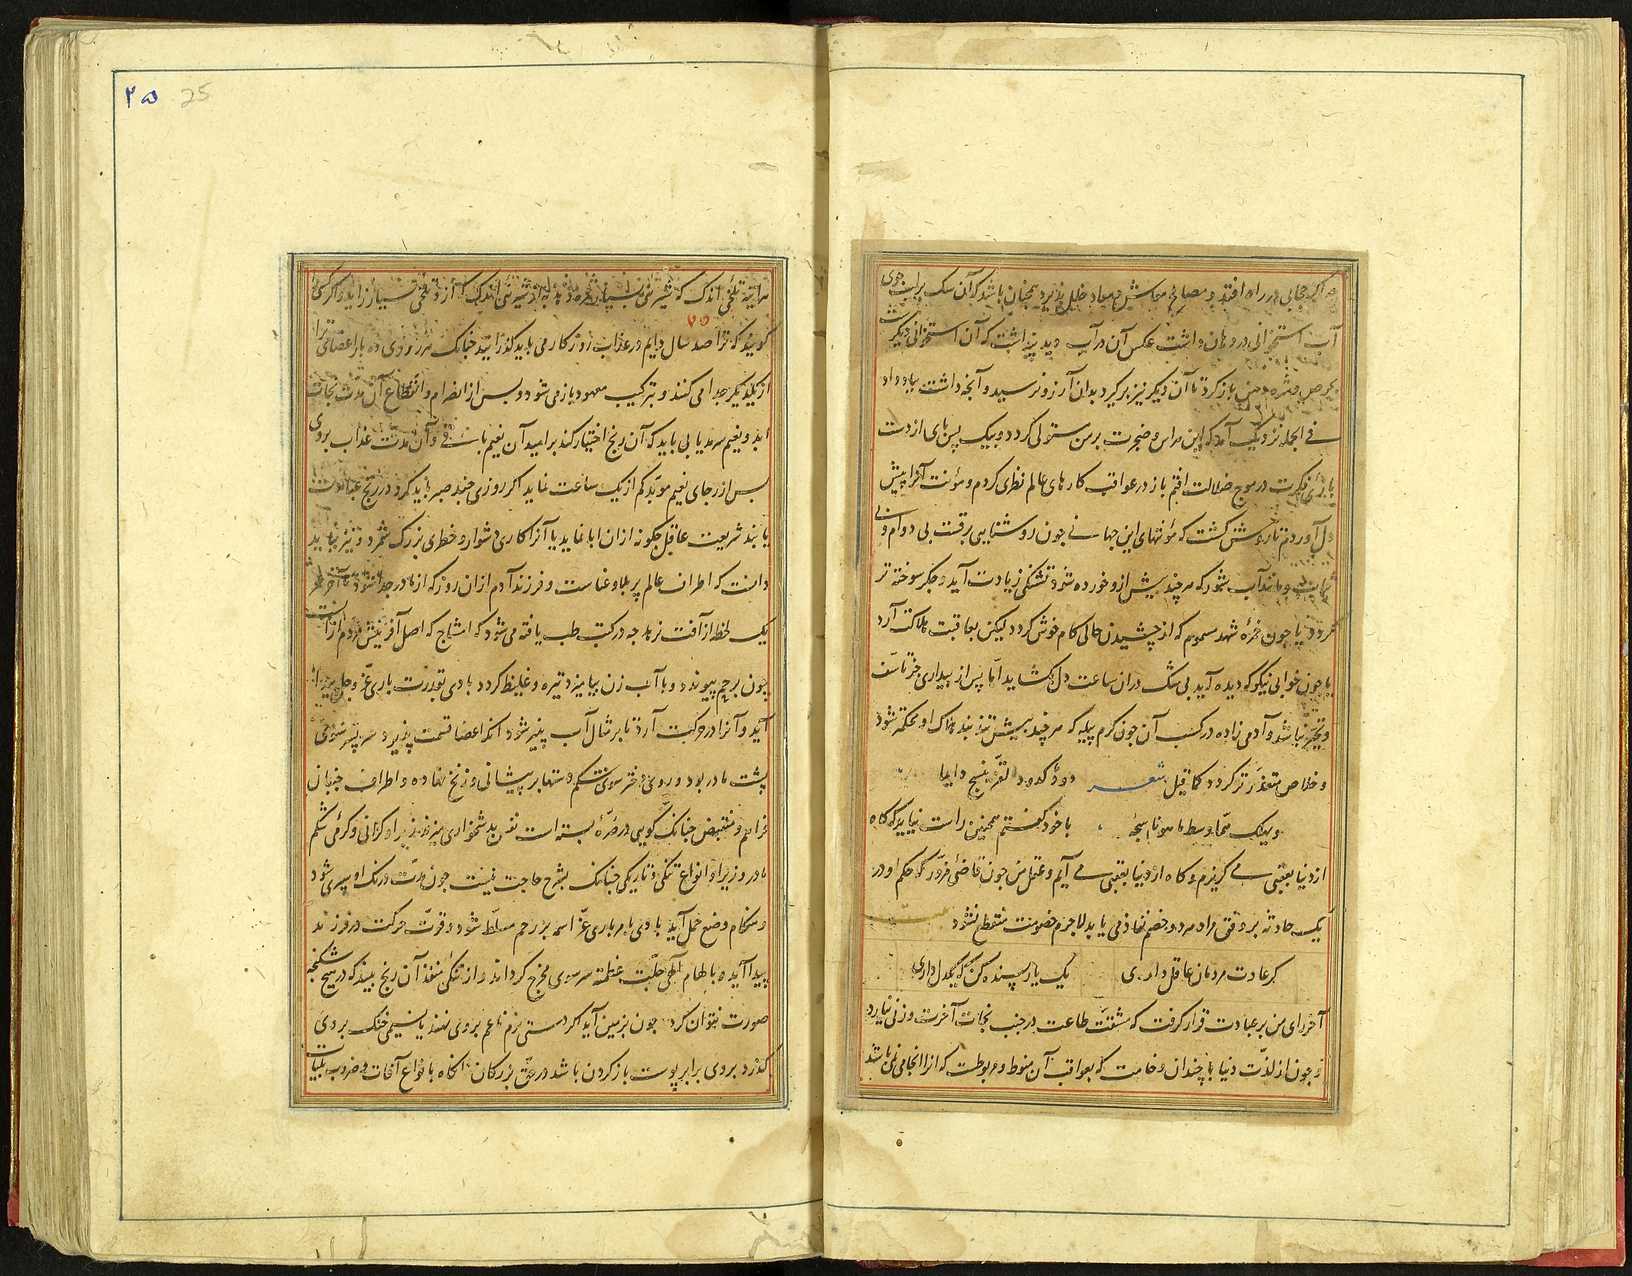 و اگر حجابی در راه افتد و مصالح معاش و معاد خلل پذیرد همچنان باشد که آن سگ بر لب جوی
آب استخوانی در دهان داشت عکس آن در آب دید پنداشت که آن استخوانی دیگرست
بحرص و شره دهن باز کرد تا آن دیگر نیز برگیرد بدان آرزو نرسید و آنچه داشت بباد داد
فی الجمله نزدیک آمد که این هراس و ضجرت بر من مستولی گردد و بیک پس پای از دست
فکرت در موج ضلالت افتم باز در عواقب کارهای عالم نظری کردم و مؤنت آنرا پیش
دل آوردم تا روشن گشت که مؤنتهای این جهانی چون روشنایی برقست بی دوام و
و مانند آب شور که هرچند بیش ازو خورده شود تشنگی زیادت آید و جگر سوخته تر
گردد یا چون خمره شهد مسموم که از چشیدن حالی کام خوش گردد لیکن بعاقبت هلاکت آرد
یا چون خوابی نیکو که دیده آید بی شک در آن ساعت دل بگشاید اما پس از بیداری جز تاسف
و تحیر نباشد و آدمی زاده در کسب آن چون کرم پیله که هرچند بیش تند بند هلاک او محکمتر شود
و خلاص متعذرتر گردد کما قیل شعر دود کدود القز ینسج دایما
ویهلک غما وسط ما هو ناسجه با خود گفتم همچنین راست نیاید که گاه
از دنیا بعقبی می گریزم و گاه از دنیا بعقبی می آیم و عقل من چون قاضی مزور که حکم او در
یک حادثه بر وفق مراد هر دو خصم نفاذ می یابد لاجرم خصومت منقطع نشود بیت
گر عادت مردمان عاقل داری یک یار پسنده کن که یکدل داری
آخر رای من بر عبادت قرار گرفت که مشقت طاعت در جنب نجات آخرت وزنی نیارد
و چون از لذت دنیا با چندان وخامت که بعواقب آن منوط و مربوطست که آنرا انجامی نمی باشد
۲۵ 25
هر آینه تلخی اندک که شیرینی بسیار ثمره دهد به از شیرینی اندک که ازو تلخی بسیار زاید و اگر کسی
۲۵
گویند که ترا صد سال دایم در عذاب روزگار می باید گذرانید چنانک هر روزی ده بار اعضای ترا
از یکدیگر جدا می کنند و بترکیب معهود باز می شود و پس از انصرام و انقطاع آن مدت نجات
ابد و نعیم سرمد یابی باید که آن رنج اختیار کند بر امید آن نعیم باقی و آن مدت عذاب بر وی
پس از رجای نعیم موبد کم از یک ساعت نماید اگر روزی چند صبر باید کرد در رنج عبادت
یا بند شریعت عاقل چگونه از آن ابا نماید یا آنرا کاری دشوار و خطری بزرگ شمرد و نیز بباید
دانست که اطراف عالم پر بلا و عناست و فرزند آدم از آن روز که از مادر جدا شود تا آخر عمر
یک لحظه از آفت نرهد چه در کتب طب یافته می شود که امشاج که اصل آفرینش مردم از آنست
چون برحم پیوندد و با آب زن بیامیزد تیره و غلیظ گردد بادی بقدرت باری عز و جل پیدا
آید و آنرا در حرکت آرد تا بر مثال آب پنیر شود آنگه اعضا قسمت پذیرد سر پسر سوی
پشت مادر بود و روی دختر سوی شکم و دستها بر پیشانی و زنخ نهاده و اطراف چنان
فراهم و منقبض چنانک گویی در صره بسته است نفس بدشخواری میزند زبر او گرانی و گرمی شکم
مادر و زیر او انواع تنگی و تاریکی چنانک بشرح حاجت نیست چون مدت درنگ او سپری شود
و هنگام وضع حمل آید بادی بامر باری عز اسمه بر رحم مسلط شود و قوت حرکت در فرزند
پیدا آید تا بالهام الهی جلت عظمته سر سوی مخرج گرداند و از تنگی منفذ آن رنج بیند که در هیچ شکنجه
صورت نتوان کرد چون بزمین آید اگر دستی نرم ناعم بر وی نهند یا نسیمی خنک بر وی
گذرد بر وی برابر پوست باز کردن باشد در حق بزرگان آنگاه بانواع آفات و ضروب بلیات